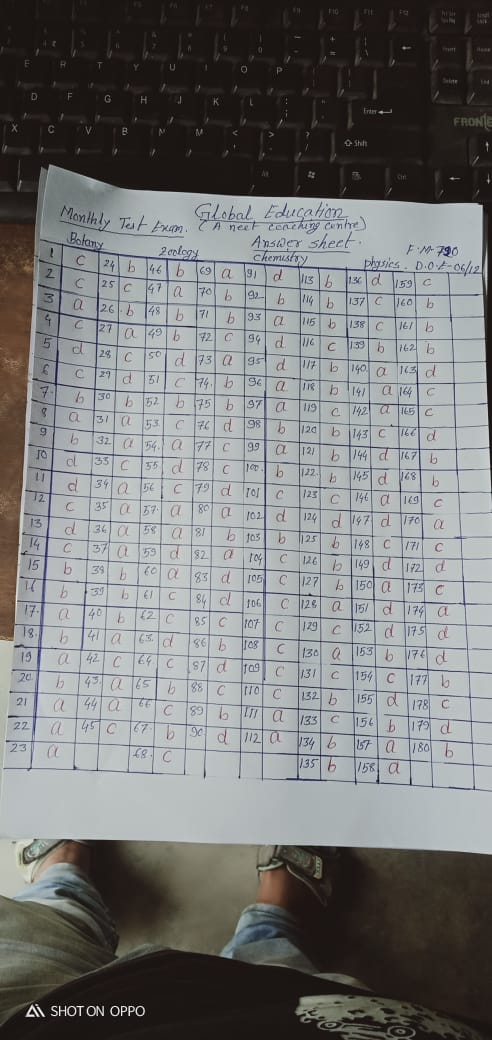 E R T Y U I O P
D F G H J K L Enter
FRONTE
X C V B N M < > ? Shift
Alt Ctrl
Global Education
Monthly Test Exam. (A neet coaching centre)
Answer sheet.
F.M-720
Botany Zoology Chemistry physics. D.O.E-06/12
1 c 24 b 46 b 69 a 91 d 113 b 136 d 159 c
2 c 25 c 47 a 70 b 92 b 114 b 137 c 160 b
3 a 26. b 48 b 71 b 93 a 115 b 138 c 161 b
4 c 27 a 49 b 72 c 94 d 116 c 139 b 162 b
5 d 28 c 50 d 73 a 95 d 117 b 140. a 163 d
6 c 29 d 51 c 74. b 96 a 118 b 141 a 164 c
7. b 30 b 52 b 75 b 97 a 119 c 142 a 165 c
8 a 31 a 53 c 76 d 98 b 120 b 143 c 166 d
9 b 32 a 54. a 77 c 99 a 121 b 144 d 167 b
10 d 33 c 55 d 78 c 100. b 122. b 145 d 168 b
11 d 34 a 56 c 79 d 101 c 123 c 146 a 169 c
12 c 35 a 57. a 80 a 102 d 124 d 147 d 170 a
13 d 36 a 58 a 81 b 103 b 125 b 148 c 171 c
14 c 37 a 59 d 82 a 104 c 126 b 149 d 172 d
15 b 38 b 60 a 83 d 105 c 127 b 150 a 173 c
16 b 39 b 61 c 84 d 106 c 128 a 151 d 174 a
17. a 40 b 62 c 85 c 107 c 129 c 152 d 175 d
18. b 41 a 63. d 86 b 108 c 130 a 153 b 176 d
19 a 42 c 64 c 87 d 109 c 131 c 154 c 177 b
20 b 43. a 65 b 88 c 110 c 132 b 155 d 178 c
21 a 44 a 66 c 89 b 111 a 133 c 156 b 179 d
22 a 45 c 67. b 90 d 112 a 134 b 157 a 180 b
23 a 68. c 135 b 158. a
SHOT ON OPPO